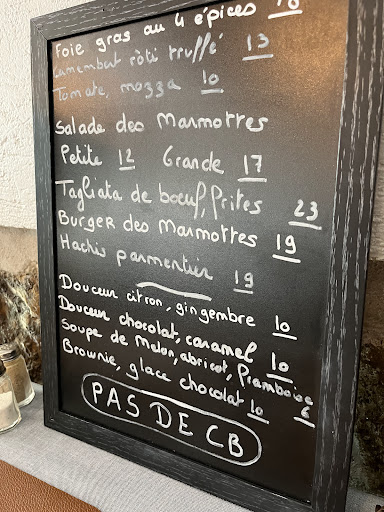 Foie gras au 4 épices 10
Camembert rôti truffé 13
Tomate, mozza 10
Salade des Marmottes
Petite 12 Grande 17
Tagliata de boeuf, frites 23
Burger des Marmottes 19
Hachis parmentier 19
Douceur citron, gingembre 10
Douceur chocolat, caramel 10
Soupe de Melon, abricot, framboise 6
Brownie, glace chocolat 10
PAS DE CB